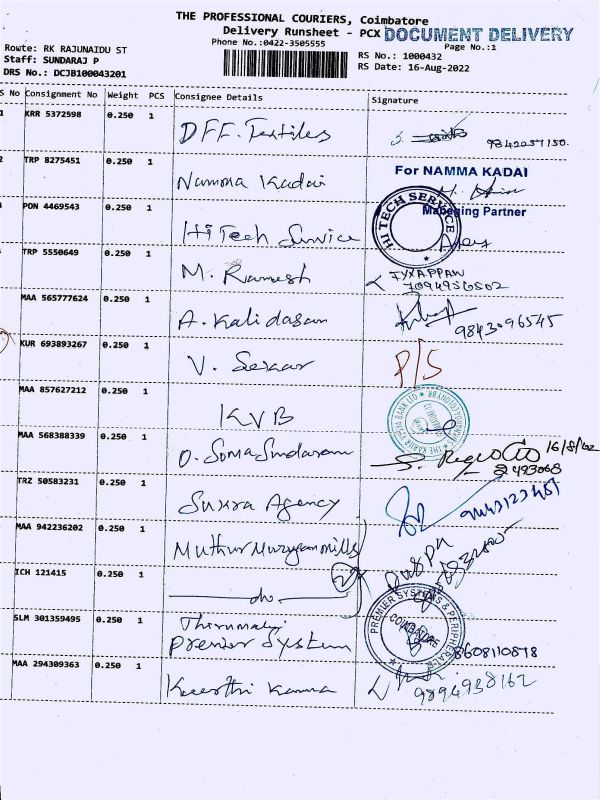 THE PROFESSIONAL COURIERS, Coimbatore
Delivery Runsheet - PCX DOCUMENT DELIVERY
Phone No.:0422-3505555 Page No.:1
Route: RK RAJUNAIDU ST RS No.: 1000432
Staff: SUNDARAJ P RS Date: 16-Aug-2022
DRS No.: DCJB100043201
S No Consignment No Weight PCS Consignee Details Signature
1 KRR 5372598 0.250 1 DFF. Textiles 9842057150.
2 TRP 8275451 0.250 1 Namma Kadai For NAMMA KADAI
Managing Partner
PON 4469543 0.250 1 HiTech Service HI TECH SERVICE
TRP 5550649 0.250 1 M. Ramesh IYYAPPAN
7094956502
MAA 565777624 0.250 1 A. Kalidasan 9843096545
KUR 693893267 0.250 1 V. Sekar P/S
MAA 857627212 0.250 1 KVB THE KARUR VYSYA BANK LTD
MAA 568388339 0.250 1 O. Somasundaram 16/8/
TRZ 50583231 0.250 1 Surra Agency
MAA 942236202 0.250 1 Muthur Murugan mills Puspa
ICH 121415 0.250 1 do.
SLM 301359495 0.250 1 Thirumalaji
Premier System PREMIER SYSTEMS & PERIPHERALS COIMBATORE 8608110878
MAA 294309363 0.250 1 Keerthi Kanna 9894938162